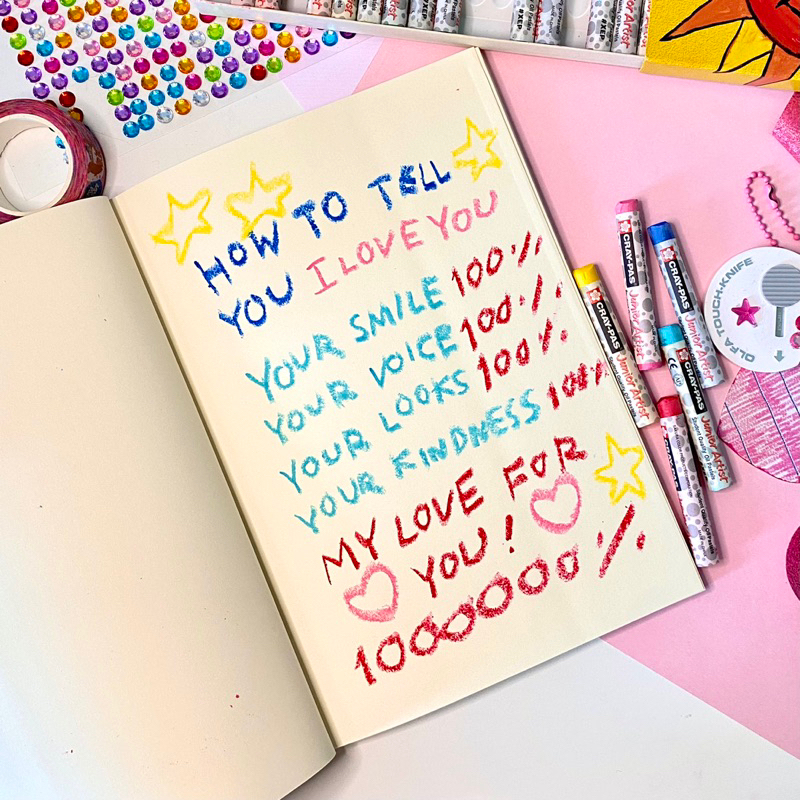 HOW TO TELL
YOU I LOVE YOU
YOUR SMILE 100%
YOUR VOICE 100%
YOUR LOOKS 100%
YOUR KINDNESS 100%
MY LOVE FOR
YOU!
1000000%
CRAY-PAS
Junior Artist
CRAY-PAS
Junior Artist
CRAY-PAS
Junior Artist
CRAY-PAS
Junior Artist
OLFA TOUCH-KNIFE